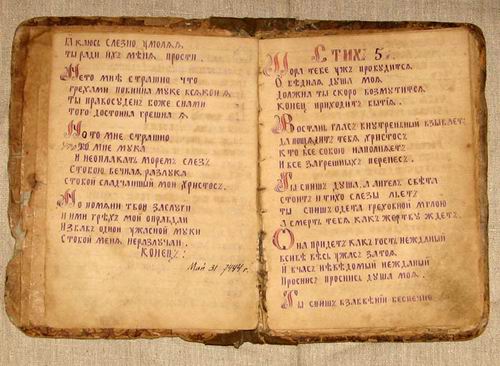 И каюсь слезно умоляя
ты ради ихъ меня прости.
Нето мне страшно что
грехами повиннa муке всякои я
Ты правосуденъ боже снами
того достоина грешная я
Но то мне страшно
то мне мука
И неоплакатъ моремъ слезъ
Стобою вечная разлука
стобой сладчаишыи мои христосъ.
Но помяни твои заслуги
и ими грѣхъ мои оправдаи
Избавь однои ужаснои муки
Стобои меня неразлучаи.
Конецъ:
Май 31 7444 г.
Стихъ 5.
Пора тебе ужъ пробудится
О бѣдная душа моя
Должна ты скоро возмутится
конецъ приходитъ бытія.
Востань гласъ внутренныи взываетъ
да пощадитъ тебя христосъ
Кто все собою наполняетъ
И все загрешныхъ перенесъ.
Ты спишъ душа, а ангелъ свѣта
стоитъ и тихо слезы льетъ
ты спишъ одета греховнои мглою
а смерть тебя какъ жертву ждетъ.
Она придетъ какъ гость нежданыи
всибѣ весь ужасъ затоя
И вчасъ невѣдомыи нежданыи
Проснись проснись душа моя.
Ты спишъ взабвѣніи беспечне